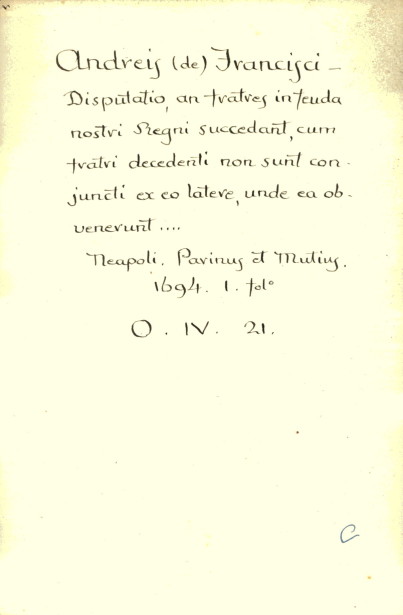 Andreis (de) Francisci -
Disputatio, an fratres in feuda
nostri Regni succedant, cum
fratri decedenti non sunt con-
juncti ex eo latere, unde ea ob-
venerunt ....
Neapoli. Parinus et Mutius.
1694. 1. fol°
O. IV. 21.
C